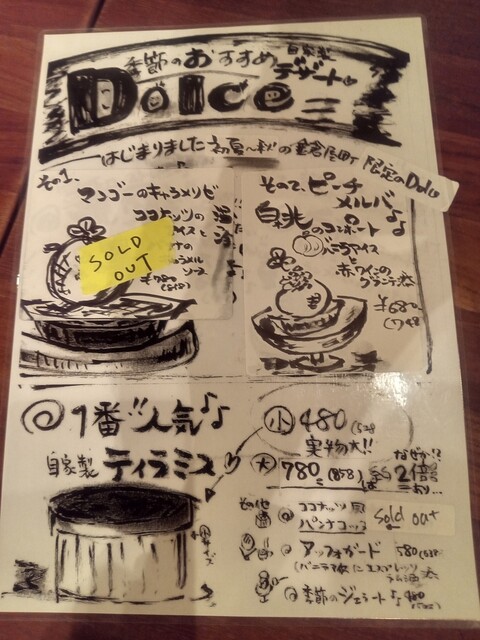 季節のおすすめ
自家製
デザート
Dolce
はじまりました 初夏〜秋の 限定のDolce
その1、
マンゴーのキャラメリゼ
ココナッツの
アイスと
ソース
SOLD
OUT
その2、ピーチ
メルバ♪
白桃のコンポート
バニラアイス
と
赤ワインの
グラニテ添
¥680
1番!!人気♪♪
自家製 ティラミス
小 480 (528
実物大!!
なぜか!?
大 780 (858) は 約2倍
その他
ココナッツ風
パンナコッタ
Sold out
アッフォガード 580 (638)
(バニラアイスにエスプレッソ
季節のジェラート♪♪ 480